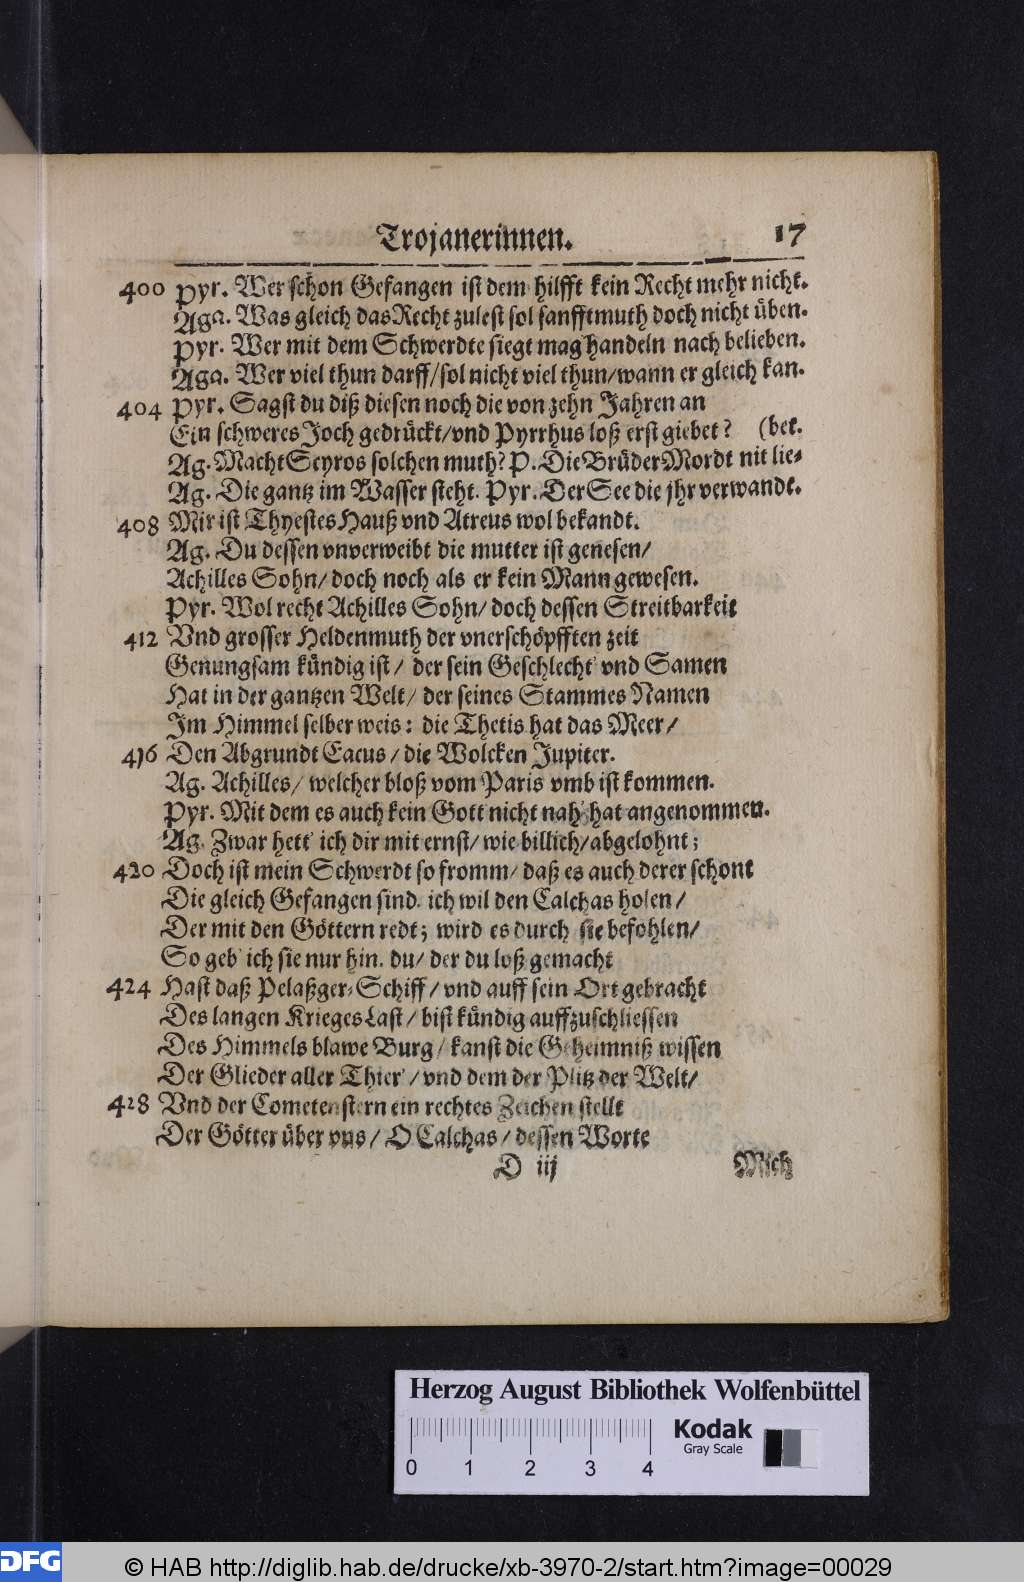 Trojanerinnen. 17
400 Pyr. Wer schon Gefangen ist dem hilfft kein Recht mehr nicht.
Aga. Was gleich das Recht zulest sol sanfftmuth doch nicht üben.
Pyr. Wer mit dem Schwerdte siegt mag handeln nach belieben.
Aga. Wer viel thun darff/sol nicht viel thun/wann er gleich kan.
404 Pyr. Sagst du diß diesen noch die von zehn Jahren an
Ein schweres Joch gedrückt/vnd Pyrrhus loß erst giebet? (bet.
Ag. Macht Scyros solchen muth? P. Die Brüder Mordt nit lie-
Ag. Die gantz im Wasser steht. Pyr. Der See die jhr verwandt.
408 Mir ist Thyestes Hauß vnd Atreus wol bekandt.
Ag. Du dessen vnverweibt die mutter ist genesen/
Achilles Sohn/ doch noch als er kein Mann gewesen.
Pyr. Wol recht Achilles Sohn/ doch dessen Streitbarkeit
412 Vnd grosser Heldenmuth der vnerschöpfften zeit
Genungsam kündig ist/ der sein Geschlecht vnd Samen
Hat in der gantzen Welt/ der seines Stammes Namen
Im Himmel selber weis: die Thetis hat das Meer/
416 Den Abgrundt Eacus/ die Wolcken Jupiter.
Ag. Achilles/ welcher bloß vom Paris vmb ist kommen.
Pyr. Mit dem es auch kein Gott nicht nah' hat angenommen.
Ag. Zwar hett' ich dir mit ernst/ wie billich/abgelohnt;
420 Doch ist mein Schwerdt so fromm/ daß es auch derer schont
Die gleich Gefangen sind. ich wil den Calchas holen/
Der mit den Göttern redt; wird es durch sie befohlen/
So geb' ich sie nur hin. du/ der du loß gemacht
424 Hast daß Pelaßger-Schiff/ vnd auff sein Ort gebracht
Des langen Krieges Last/ bist kündig auffzuschliessen
Des Himmels blawe Burg/ kanst die Geheimniß wissen
Der Glieder aller Thier'/ vnd dem der Plitz der Welt/
428 Vnd der Cometenstern ein rechtes Zeichen stellt
Der Götter über vns/ O Calchas/ dessen Worte
D iij Mich
Herzog August Bibliothek Wolfenbüttel
Kodak
Gray Scale
0 1 2 3 4
DFG © HAB http://diglib.hab.de/drucke/xb-3970-2/start.htm?image=00029